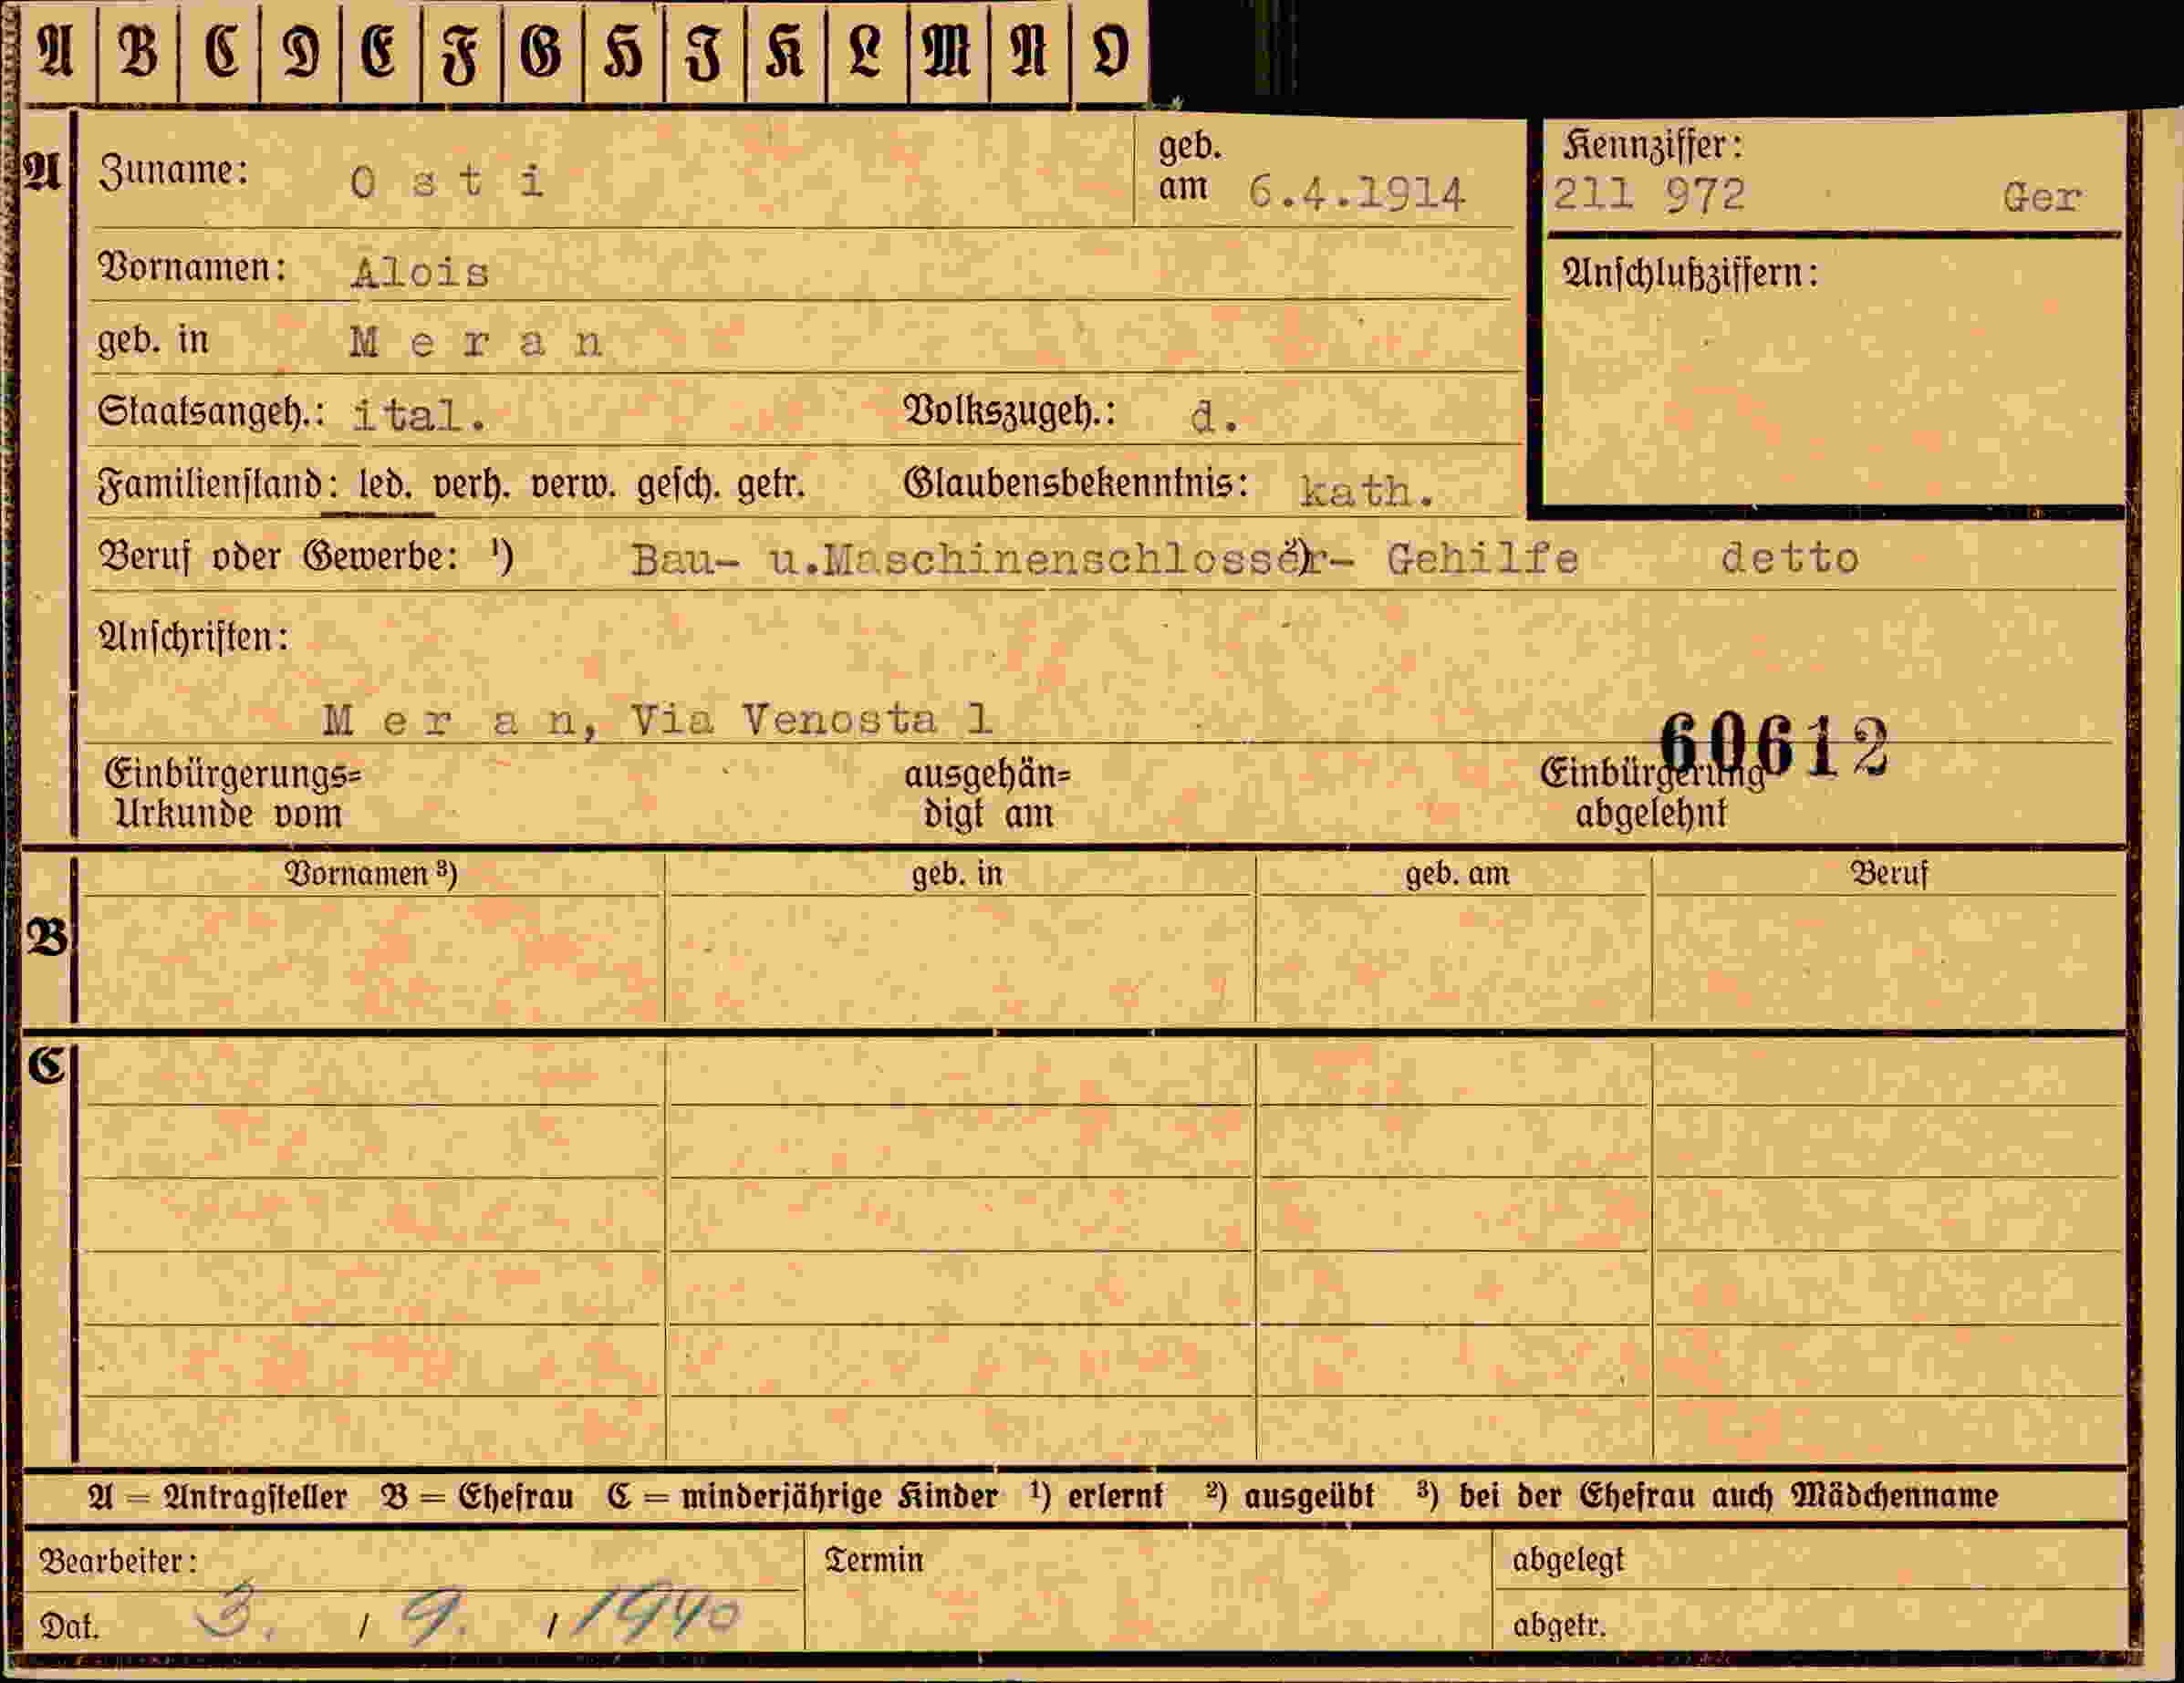 A B C D E F G H J K L M N O
A Zuname: O s t i geb. am 6.4.1914 Kennziffer: 211 972 Ger
Vornamen: Alois Anschlußziffern:
geb. in M e r a n
Staatsangeh.: ital. Volkszugeh.: d.
Familienstand: led. verh. verw. gesch. getr. Glaubensbekenntnis: kath.
Beruf oder Gewerbe: ¹) Bau- u.Maschinenschlosser- Gehilfe detto
Anschriften:
M e r a n, Via Venosta 1
60612
Einbürgerungs= ausgehän= Einbürgerung
Urkunde vom digt am abgelehnt
Vornamen ³) geb. in geb. am Beruf
B
C
A = Antragsteller B = Ehefrau C = minderjährige Kinder ¹) erlernt ²) ausgeübt ³) bei der Ehefrau auch Mädchenname
Bearbeiter: Termin abgelegt
Dat. 3. / 9. / 1940 abgetr.